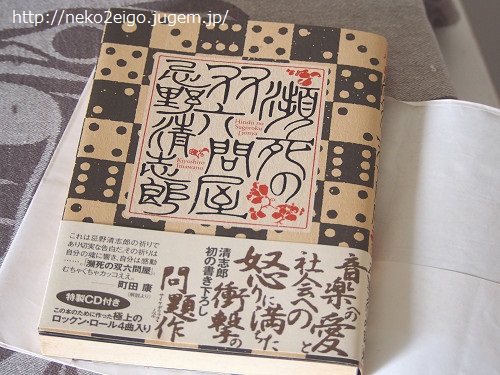 http://neko2eigo.jugem.jp/
瀕死の
双六問屋
忌野清志郎
Hinshi no
Sugoroku
Donya
Kiyoshiro
Imawano
音楽への愛と
社会への
怒りに満ちた
清志郎
初の書き下ろし
衝撃の
問題作
これは忌野清志郎の祈りで
あり切実な告白だ。その祈りは
自分の魂に響き、自分は感動
……。『瀕死の双六問屋』、
むちゃくちゃカッコええ。
町田 康
(解説より)
特製CD付き
この本のために作った極上の
ロックン・ロール4曲入り